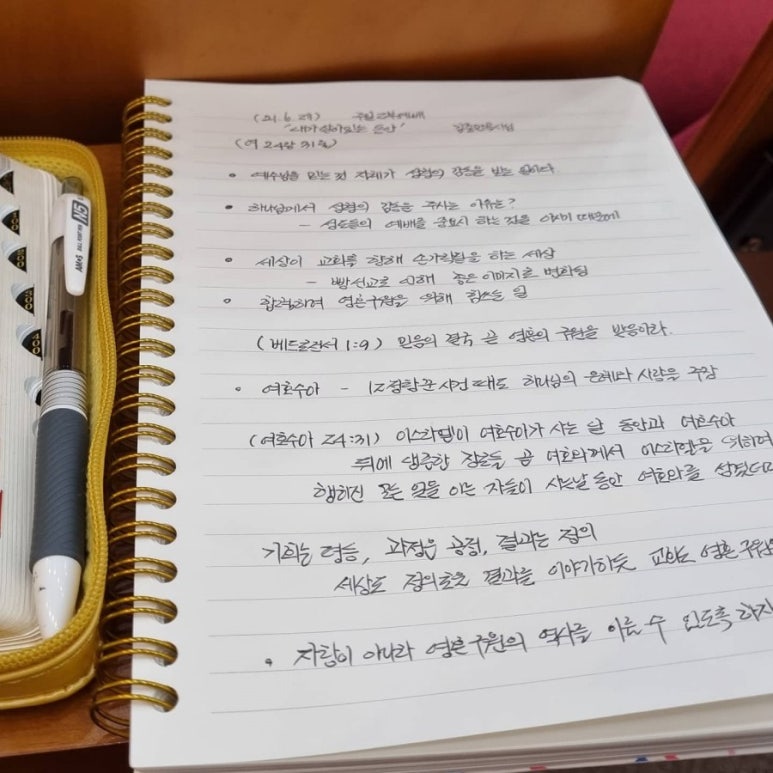 (21. 6. 27) 주일 2부예배
"내가 살아있는 동안"
(여 24장 31절)
• 예수님을 믿는 것 자체가 성령의 감동을 받는 일이다.
• 하나님께서 성령의 감동을 주시는 이유는?
- 성도들의 예배를 중요시 하는 것을 아시기 때문에
• 세상이 교회를 향해 손가락질을 하는 세상
- 빵선교로 인해 좋은 이미지로 변화됨
• 합력하여 영혼구원을 위해 힘쓰는 일
(베드로전서 1:9) 믿음의 결국 곧 영혼의 구원을 받음이라.
• 여호수아 - 12정탐꾼 사건 때도 하나님의 은혜와 사랑을 주장
(여호수아 24:31) 이스라엘이 여호수아가 사는 날 동안과 여호수아
뒤에 생존한 장로들 곧 여호와께서 이스라엘을 위하여
행하신 모든 일을 아는 자들이 사는날 동안 여호와를 섬겼더라
기회는 평등, 과정은 공정, 결과는 정의
세상도 정의로운 결과를 이야기하듯 교회도 영혼구원
• 자랑이 아니라 영혼구원의 역사를 이룰 수 있도록 하자
400